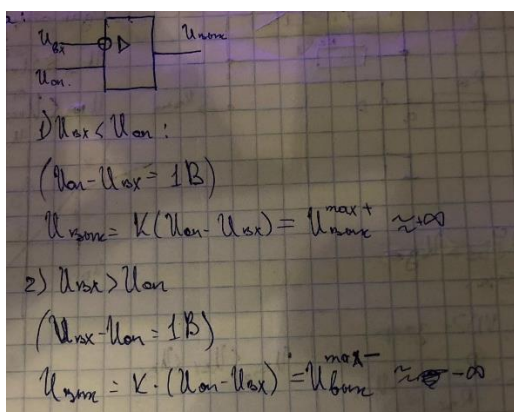 Uвх Uвых
Uоп.
1) Uвх < Uоп :
(Uоп - Uвх = 1В)
Uвых = K(Uоп - Uвх) = Uвых^max+ ≈ +∞
2) Uвх > Uоп
(Uвх - Uоп = 1В)
Uвых = K · (Uоп - Uвх) = Uвых^max- ≈ -∞